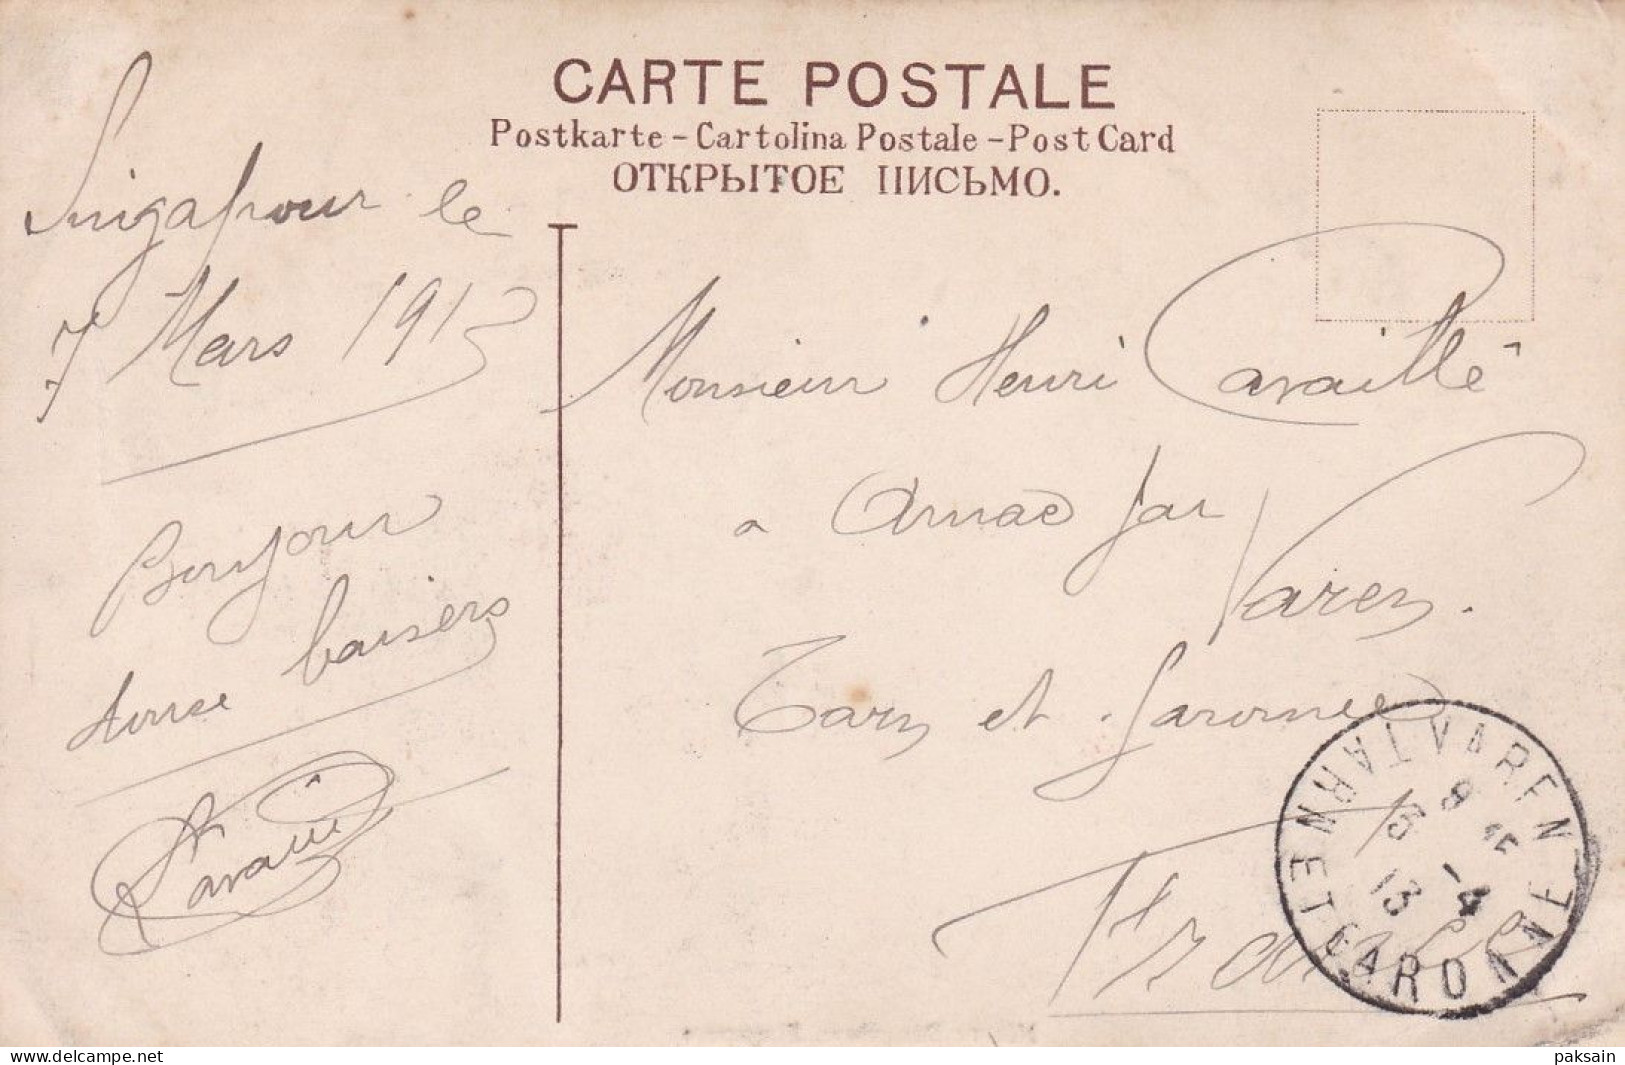 CARTE POSTALE
Postkarte - Cartolina Postale - Post Card
ОТКРЫТОЕ ПИСЬМО.
Singapour le
7 Mars 1913
Bonjour
douce baisers
Cavaillé
Monsieur Henri Cavaillé
a Arnac par
Varen.
Tarn et Garonne
France
VAREN
TARN ET GARONNE
8 15
5 -4
13
delcampe.net
paksain